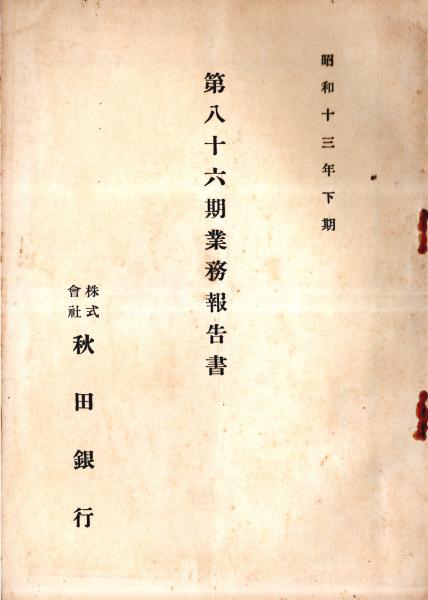 昭和十三年下期
第八十六期業務報告書
株式會社
秋田銀行